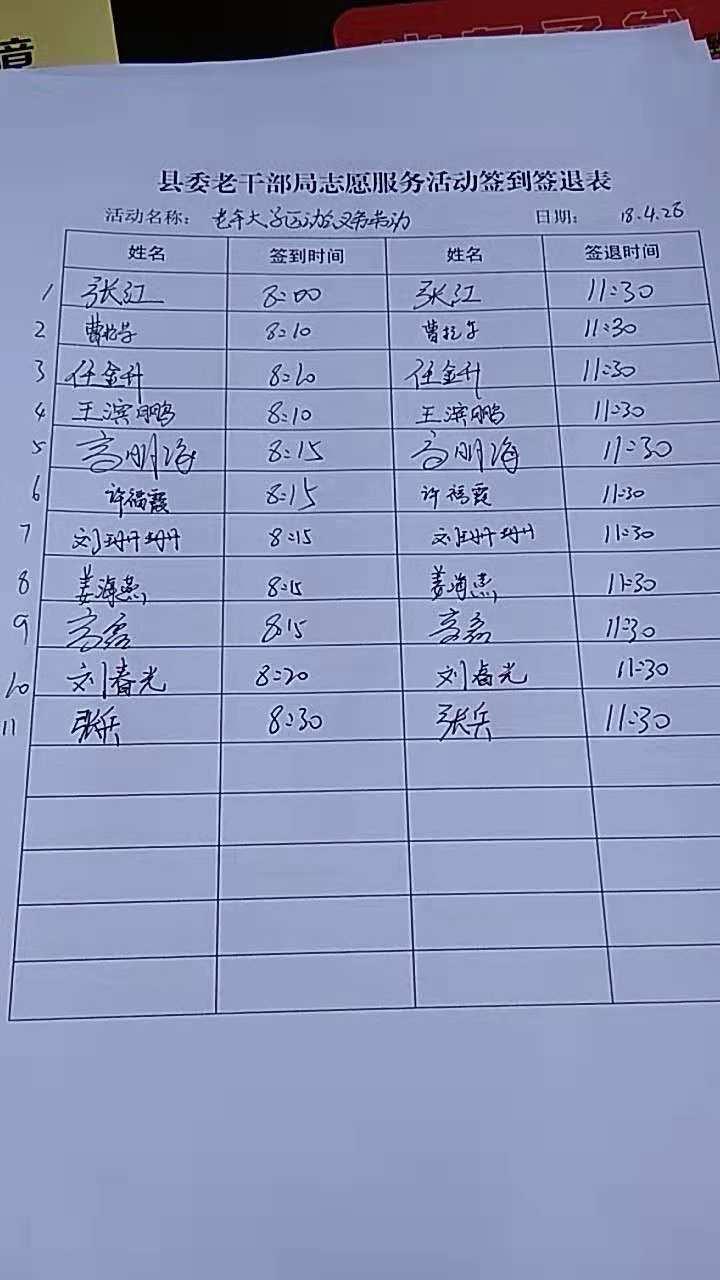 障
县委老干部局志愿服务活动签到签退表
活动名称: 老年大学运动会义务劳动 日期: 18.4.26
姓名 签到时间 姓名 签退时间
1 张江 8:00 张江 11:30
2 曹 8:10 曹 11:30
3 任金升 8:10 任金升 11:30
4 王滨鹏 8:10 王滨鹏 11:30
5 高明海 8:15 高明海 11:30
6 许福霞 8:15 许福霞 11:30
7 刘珊珊 8:15 刘珊珊 11:30
8 姜海燕 8:15 姜海燕 11:30
9 高磊 8:15 高磊 11:30
10 刘春光 8:20 刘春光 11:30
11 张兵 8:30 张兵 11:30